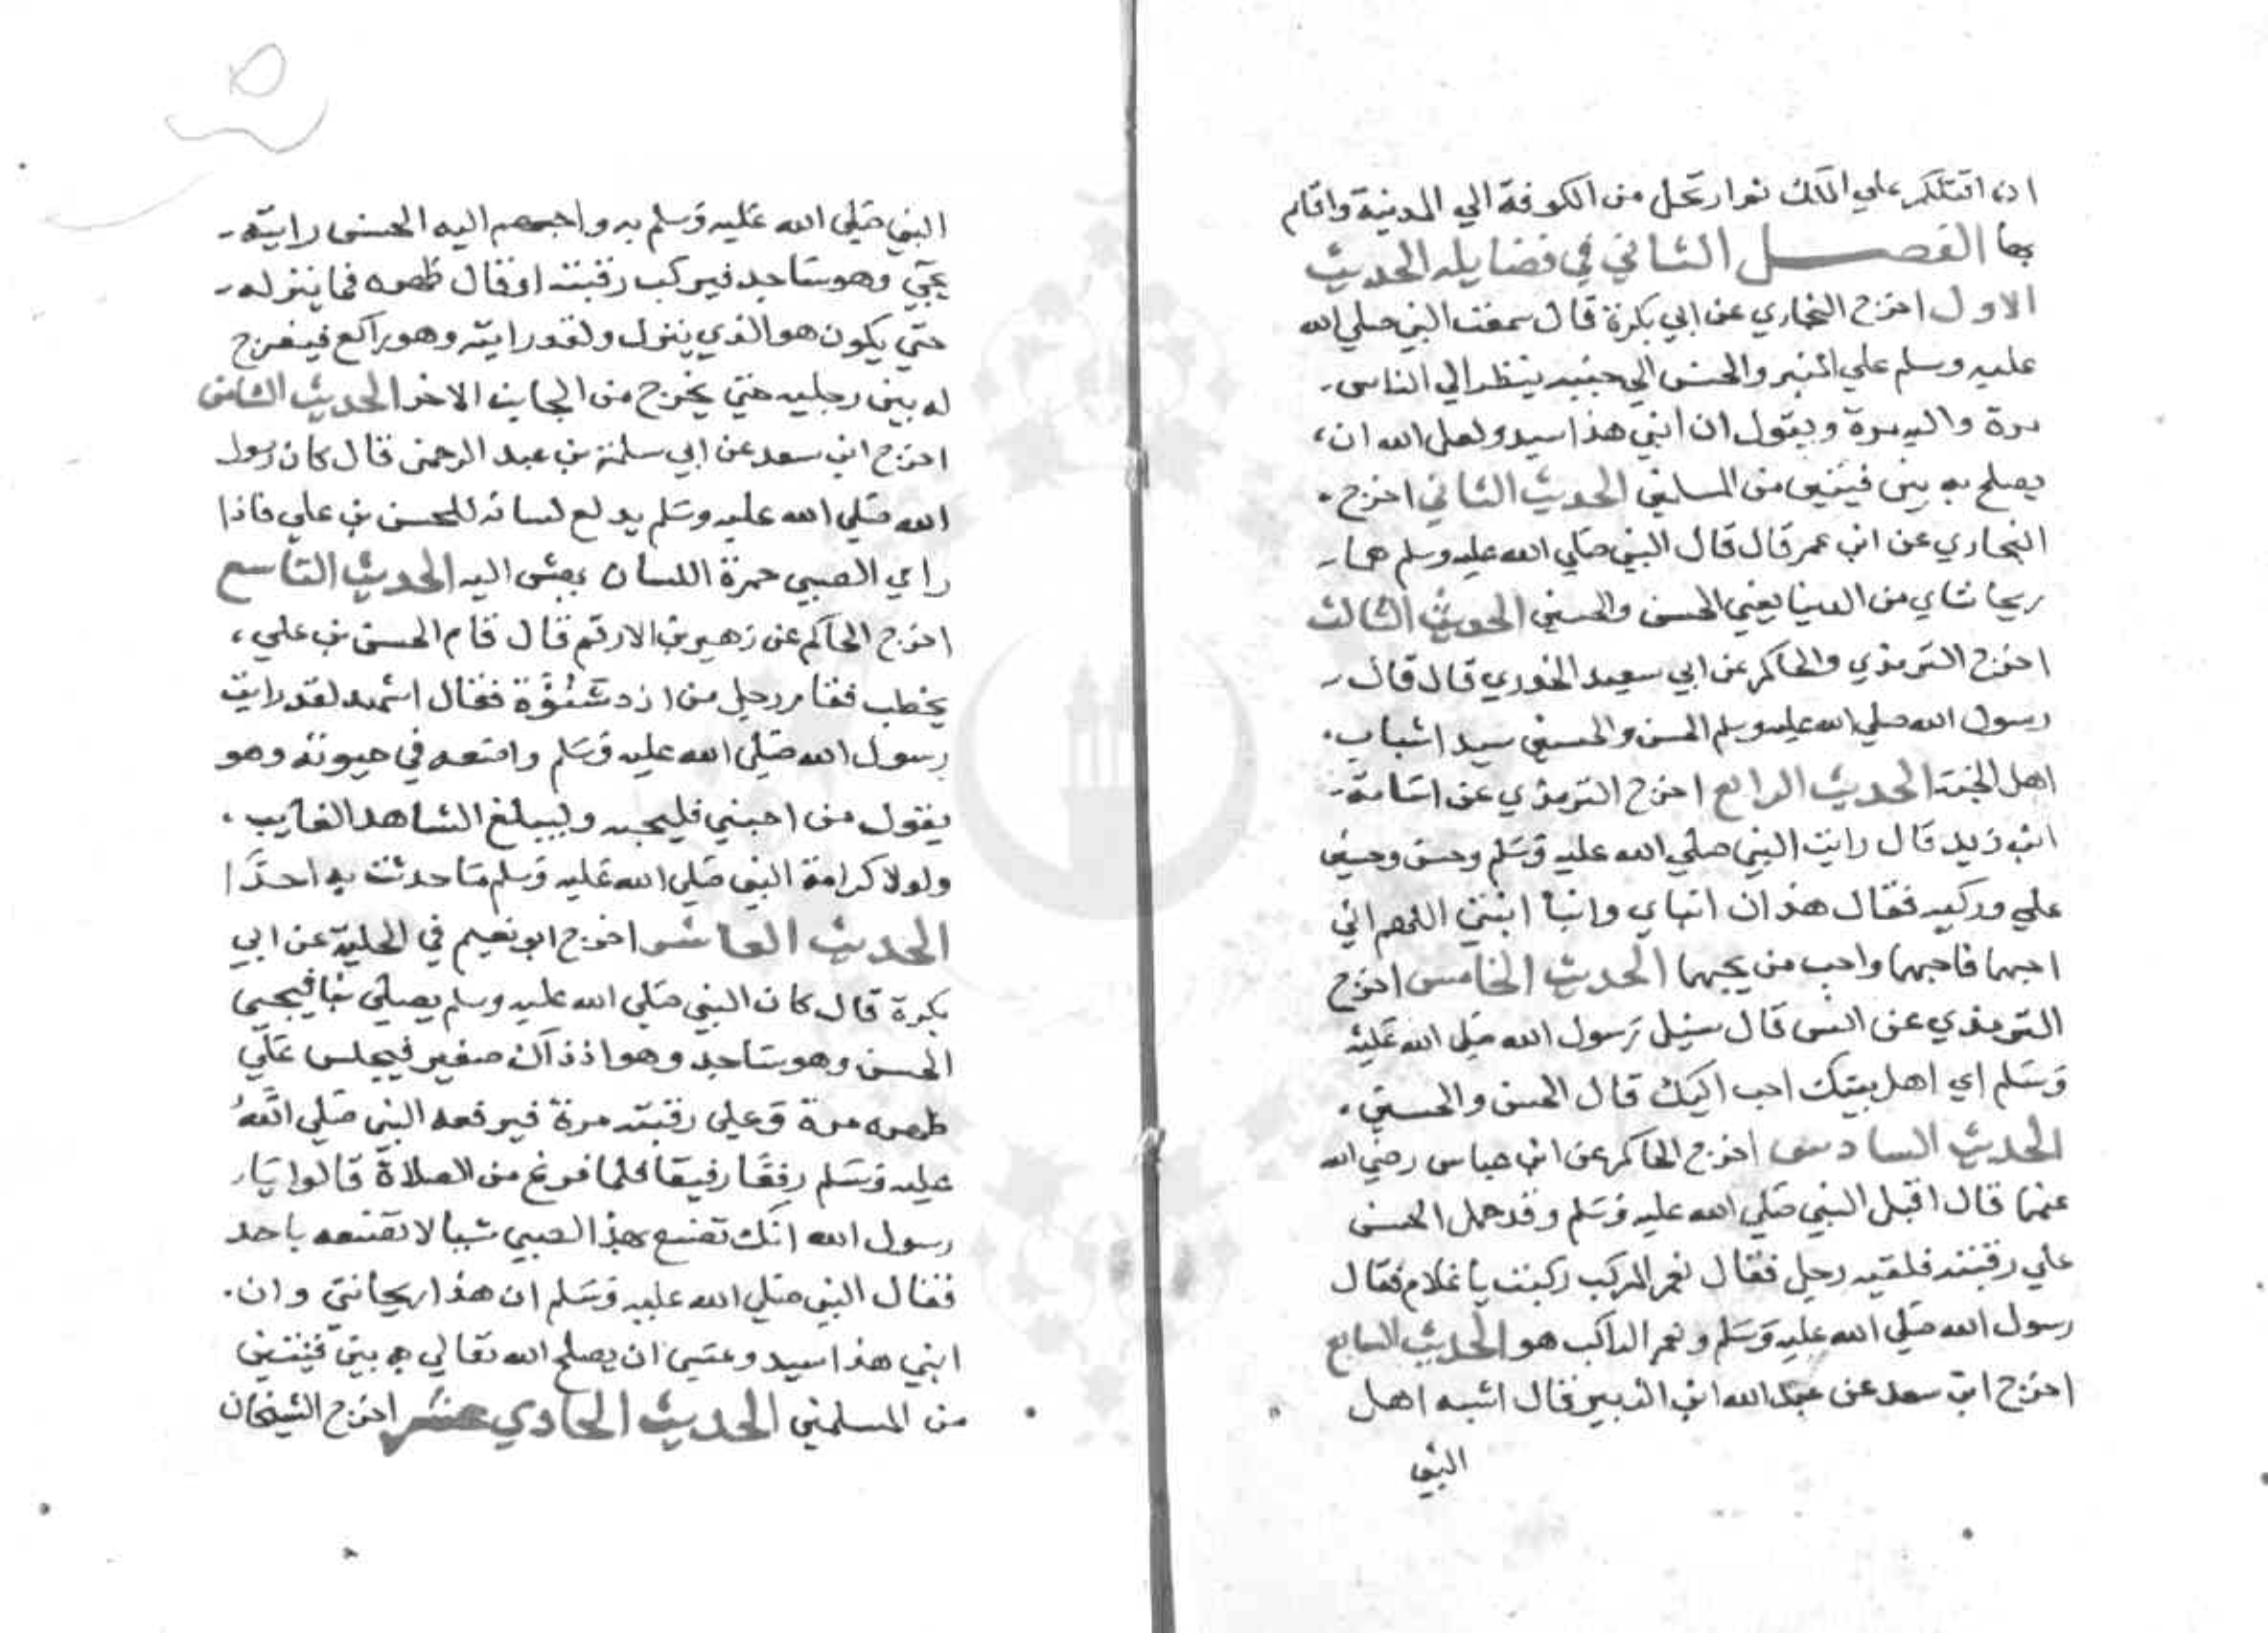 ان اقتلكم علي الملك ثم ارتحل من الكوفة الي المدينة واقام
بها الفصل الثاني في فضايله الحديث
الاول اخرج البخاري عن ابي بكرة قال سمعت النبي صلي الله
عليه وسلم علي المنبر والحسن الي جنبه ينظر الي الناس
مرة واليه مرة ويقول ان ابني هذا سيد ولعل الله ان
يصلح به بين فيتين من المسلمين الحديث الثاني اخرج
البخاري عن ابن عمر قال قال النبي صلي الله عليه وسلم هما
ريحانتاي من الدنيا يعني الحسن والحسين الحديث الثالث
اخرج الترمذي والحاكم عن ابي سعيد الخدري قال قال
رسول الله صلي الله عليه وسلم الحسن والحسين سيدا شباب
اهل الجنة الحديث الرابع اخرج الترمذي عن اسامة
ابن زيد قال رايت النبي صلي الله عليه وسلم وحسن وحسين
علي وركيه فقال هذان ابناي وابنا ابنتي اللهم اني
احبهما فاحبهما واحب من يحبهما الحديث الخامس اخرج
الترمذي عن انس قال سئيل رسول الله صلي الله عليه
وسلم اي اهل بيتك احب اليك قال الحسن والحسين
الحديث السادس اخرج الحاكم عن ابن عباس رضي الله
عنهما قال اقبل النبي صلي الله عليه وسلم وقد حمل الحسن
علي رقبته فلقيه رجل فقال نعم المركب ركبت يا غلام فقال
رسول الله صلي الله عليه وسلم ونعم الراكب هو الحديث السابع
اخرج ابن سعد عن عبد الله ابن الزبير قال اشبه اهل
النبي
النبي صلي الله عليه وسلم به واحبهم اليه الحسن رايته
يجي وهو ساجد فيركب رقبته او قال ظهره فما ينزله
حتي يكون هو الذي ينزل ولقد رايته وهو راكع فيفرج
له بين رجليه حتي يخرج من الجانب الاخر الحديث الثامن
اخرج ابن سعد عن ابي سلمة بن عبد الرحمن قال كان رسول
الله صلي الله عليه وسلم يدلع لسانه للحسن بن علي فاذا
راي الصبي حمرة اللسان يهش اليه الحديث التاسع
اخرج الحاكم عن زهير بن الارقم قال قام الحسن بن علي
يخطب فقام رجل من ازد شنوة فقال اشهد لقد رايت
رسول الله صلي الله عليه وسلم واضعه في حبوته وهو
يقول من احبني فليحبه وليبلغ الشاهد الغايب
ولولا كرامة النبي صلي الله عليه وسلم ما حدثت به احدا
الحديث العاشر اخرج ابو نعيم في الحلية عن ابي
بكرة قال كان النبي صلي الله عليه وسلم يصلي بنا فيجي
الحسن وهو ساجد وهو اذ ذاك صغير فيجلس علي
ظهره مرة وعلي رقبته مرة فيرفعه النبي صلي الله
عليه وسلم رفقا رفيقا فلما فرغ من الصلاة قالوا يا
رسول الله انك تصنع بهذا الصبي شيا لا تصنعه باحد
فقال النبي صلي الله عليه وسلم ان هذا ريحانتي وان
ابني هذا سيد وعسي ان يصلح الله تعالي به بين فيتين
من المسلمين الحديث الحادي عشر اخرج الشيخان